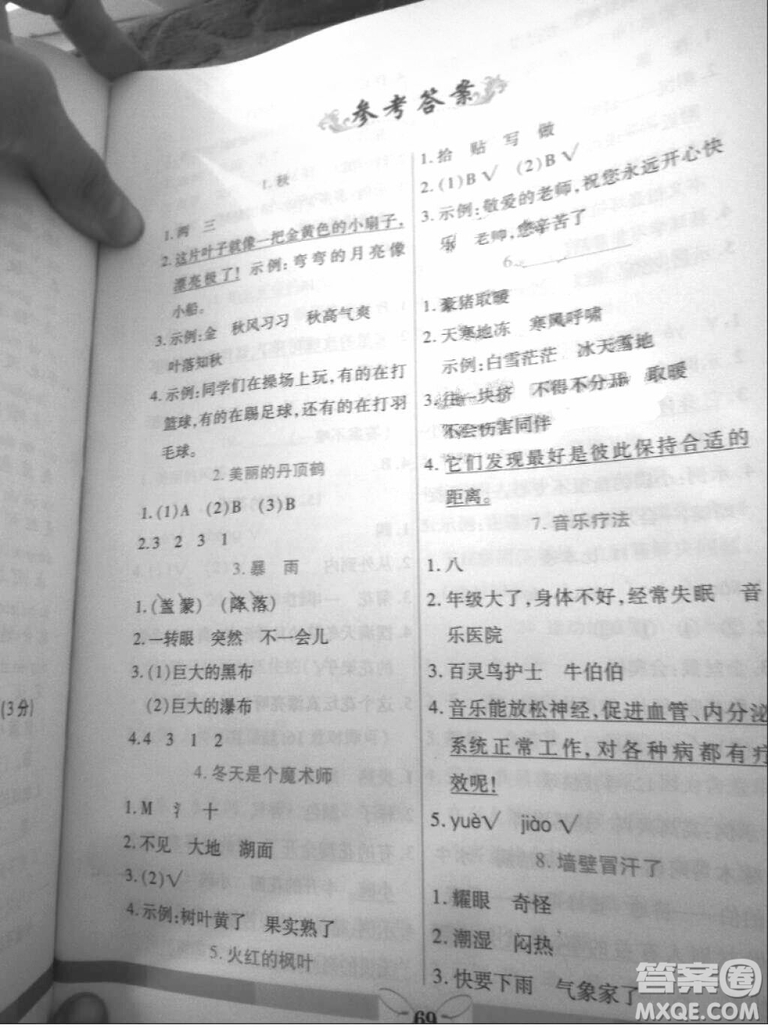 参考答案
1.秋
1.两 三
2.这片叶子就像一把金黄色的小扇子,
漂亮极了! 示例:弯弯的月亮像
小船。
3.示例:金 秋风习习 秋高气爽
叶落知秋
4.示例:同学们在操场上玩,有的在打
篮球,有的在踢足球,还有的在打羽
毛球。
2.美丽的丹顶鹤
1.(1)A (2)B (3)B
2.3 2 3 1
3.暴 雨
1.(盖蒙) (降落)
2.一转眼 突然 不一会儿
3.(1)巨大的黑布
(2)巨大的瀑布
4.4 3 1 2
4.冬天是个魔术师
1.M 氵 十
2.不见 大地 湖面
3.(2)√
4.示例:树叶黄了 果实熟了
5.火红的枫叶
1.拾 贴 写 做
2.(1)B√ (2)B√
3.示例:敬爱的老师,祝您永远开心快
乐 老师,您辛苦了
6.
1.豪猪取暖
2.天寒地冻 寒风呼啸
示例:白雪茫茫 冰天雪地
3.往一块挤 不得不分开 取暖
不会伤害同伴
4.它们发现最好是彼此保持合适的
距离。
7.音乐疗法
1.八
2.年级大了,身体不好,经常失眠 音
乐医院
3.百灵鸟护士 牛伯伯
4.音乐能放松神经,促进血管、内分泌
系统正常工作,对各种病都有疗
效呢!
5.yuè√ jiào√
8.墙壁冒汗了
1.耀眼 奇怪
2.潮湿 闷热
3.快要下雨 气象家了
(3分)
69
答案圈
MXQE.COM